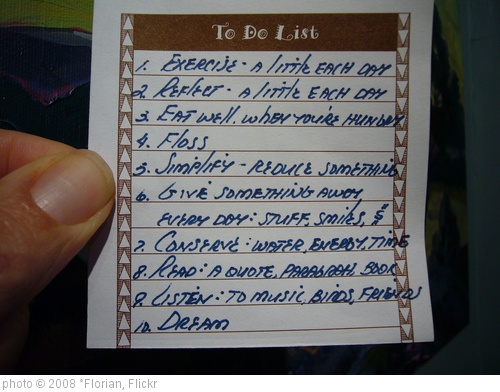 To Do List
1. EXERCISE - A LITTLE EACH DAY
2. REFLECT - A LITTLE EACH DAY
3. EAT WELL, WHEN YOU'RE HUNGRY
4. FLOSS
5. SIMPLIFY - REDUCE SOMETHING
6. GIVE SOMETHING AWAY
EVERY DAY: STUFF, SMILES, $
7. CONSERVE: WATER, ENERGY, TIME
8. READ: A QUOTE, PARAGRAPH, BOOK
9. LISTEN: TO MUSIC, BIRDS, FRIENDS
10. DREAM
photo © 2008 *Florian, Flickr